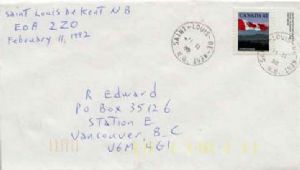 Saint Louis De Kent N B
E0A 2Z0
February 11, 1992
CANADA
SAINT-LOUIS-DE-KENT, N.B.
R Edward
PO Box 35126
Station E
Vancouver, B.C
V6M 4G1